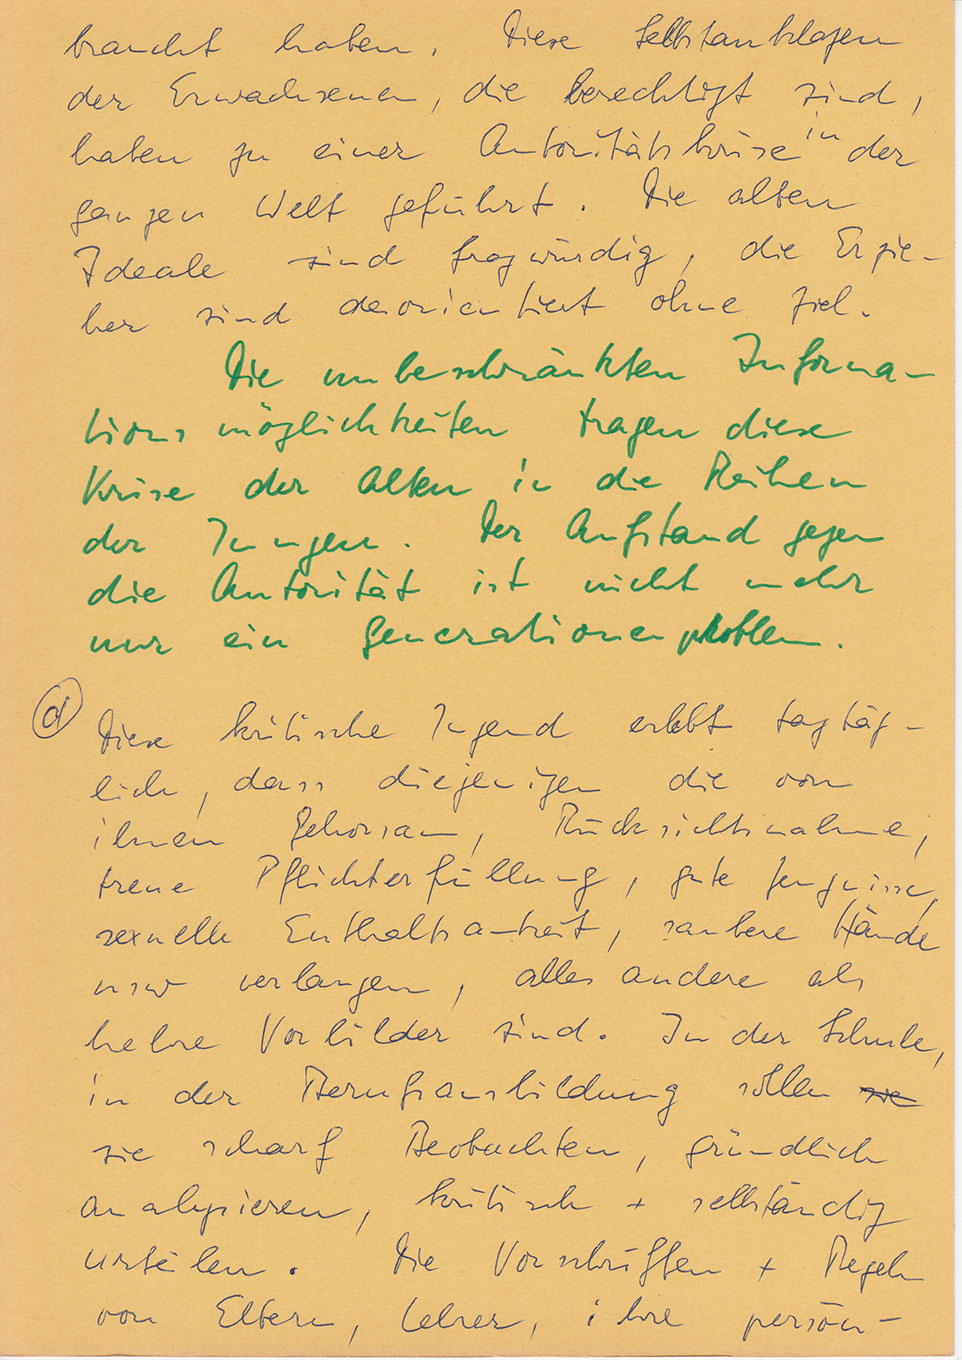 braucht haben. Diese Selbstanklagen
der Erwachsenen, die berechtigt sind,
haben zu einer Autoritätskrise in der
ganzen Welt geführt. Die alten
Ideale sind fragwürdig, die Erzie-
her sind desorientiert ohne Ziel.
Die unbeschränkten Informa-
tionsmöglichkeiten tragen diese
Krise der Alten in die Reihen
der Jungen. Der Aufstand gegen
die Autorität ist nicht mehr
nur ein Generationenproblem.
d Diese kritische Jugend erlebt tagtäg-
lich, dass diejenigen die von
ihnen Gehorsam, Rücksichtsnahme,
treue Pflichterfüllung, gute Zeugnisse,
sexuelle Enthaltsamkeit, saubere Hände
usw verlangen, alles andere als
hehre Vorbilder sind. In der Schule,
in der Berufsausbildung sollen sie
sie scharf Beobachten, gründlich
analysieren, kritisch + selbständig
urteilen. Die Vorschriften + Regeln
von Eltern, Lehrer, ihre persön-